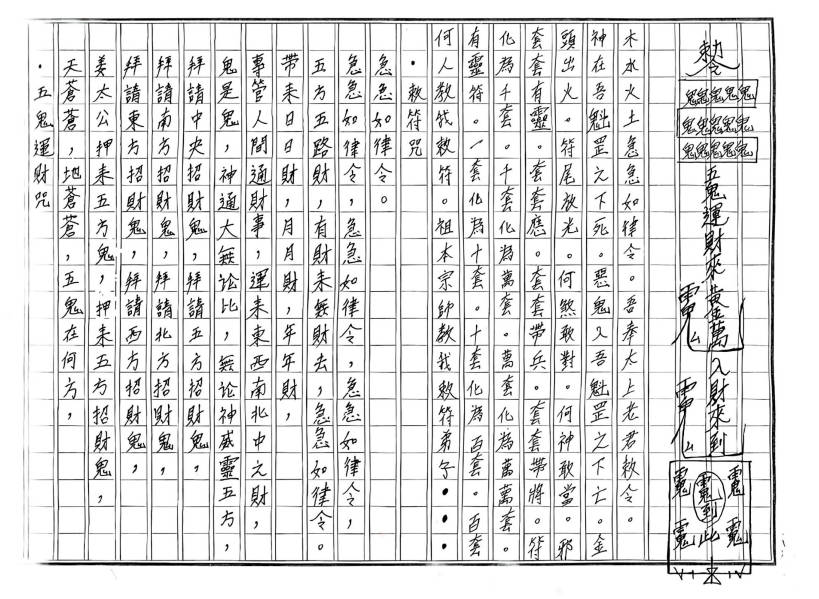 ·五鬼運財咒
天蒼蒼，地蒼蒼，五鬼在何方，
姜太公押來五方鬼，押來五方招財鬼，
拜請東方招財鬼，拜請西方招財鬼，
拜請南方招財鬼，拜請北方招財鬼，
拜請中央招財鬼，拜請五方招財鬼，
鬼是鬼，神通大無論比，無論神威靈五方，
事管人間通財事，運來東西南北中之財，
帶來日日財，月月財，年年財，
五方五路財，有財來無財去，急急如律令。
急急如律令，急急如律令，急急如律令，
急急如律令。
·敕符咒
何人教我敕符。祖本宗師教我敕符弟子•••
有靈符一套化為十套。十套化為百套。百套
化為千套。千套化為萬套。萬套化為萬萬套。
套套有靈。套套應。套套帶兵。套套帶將。符
頭出火。符尾放光。何煞敢對。何神敢當。邪
神在吾魁罡之下死。惡鬼入吾魁罡之下亡。金
木水火土急急如律令。吾奉太上老君敕令。
敕令
鬼鬼鬼鬼鬼
鬼鬼鬼鬼鬼
鬼鬼鬼鬼鬼
五鬼運財來黃金萬入財來到
到此